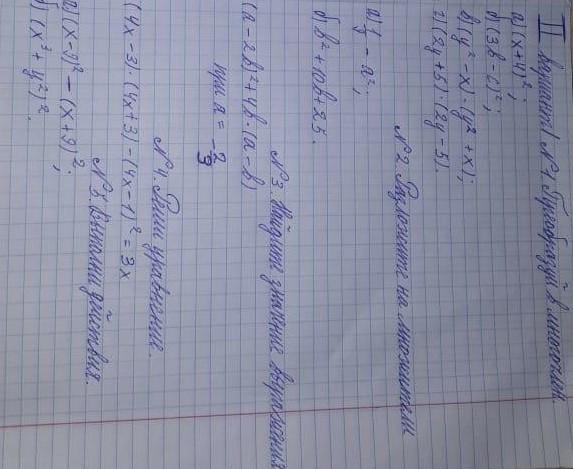 II вариант №1. Преобразуй в многочлен.
а) (x+4)²;
б) (3b-c)²;
в) (y²-x)·(y²+x);
г) (2y+5)·(2y-5).
№2. Разложите на множители
а) - a²;
б) b²+10b+25.
№3. Найдите значение выражения
(a-2b)²+4b·(a-b)
при a = -
№4. Реши уравнение.
(4x-3)·(4x+3)-(4x-1)² = 3x
№5. Выполни действия.
а) (x-9)² - (x+9)²;
б) (x³+y²)².